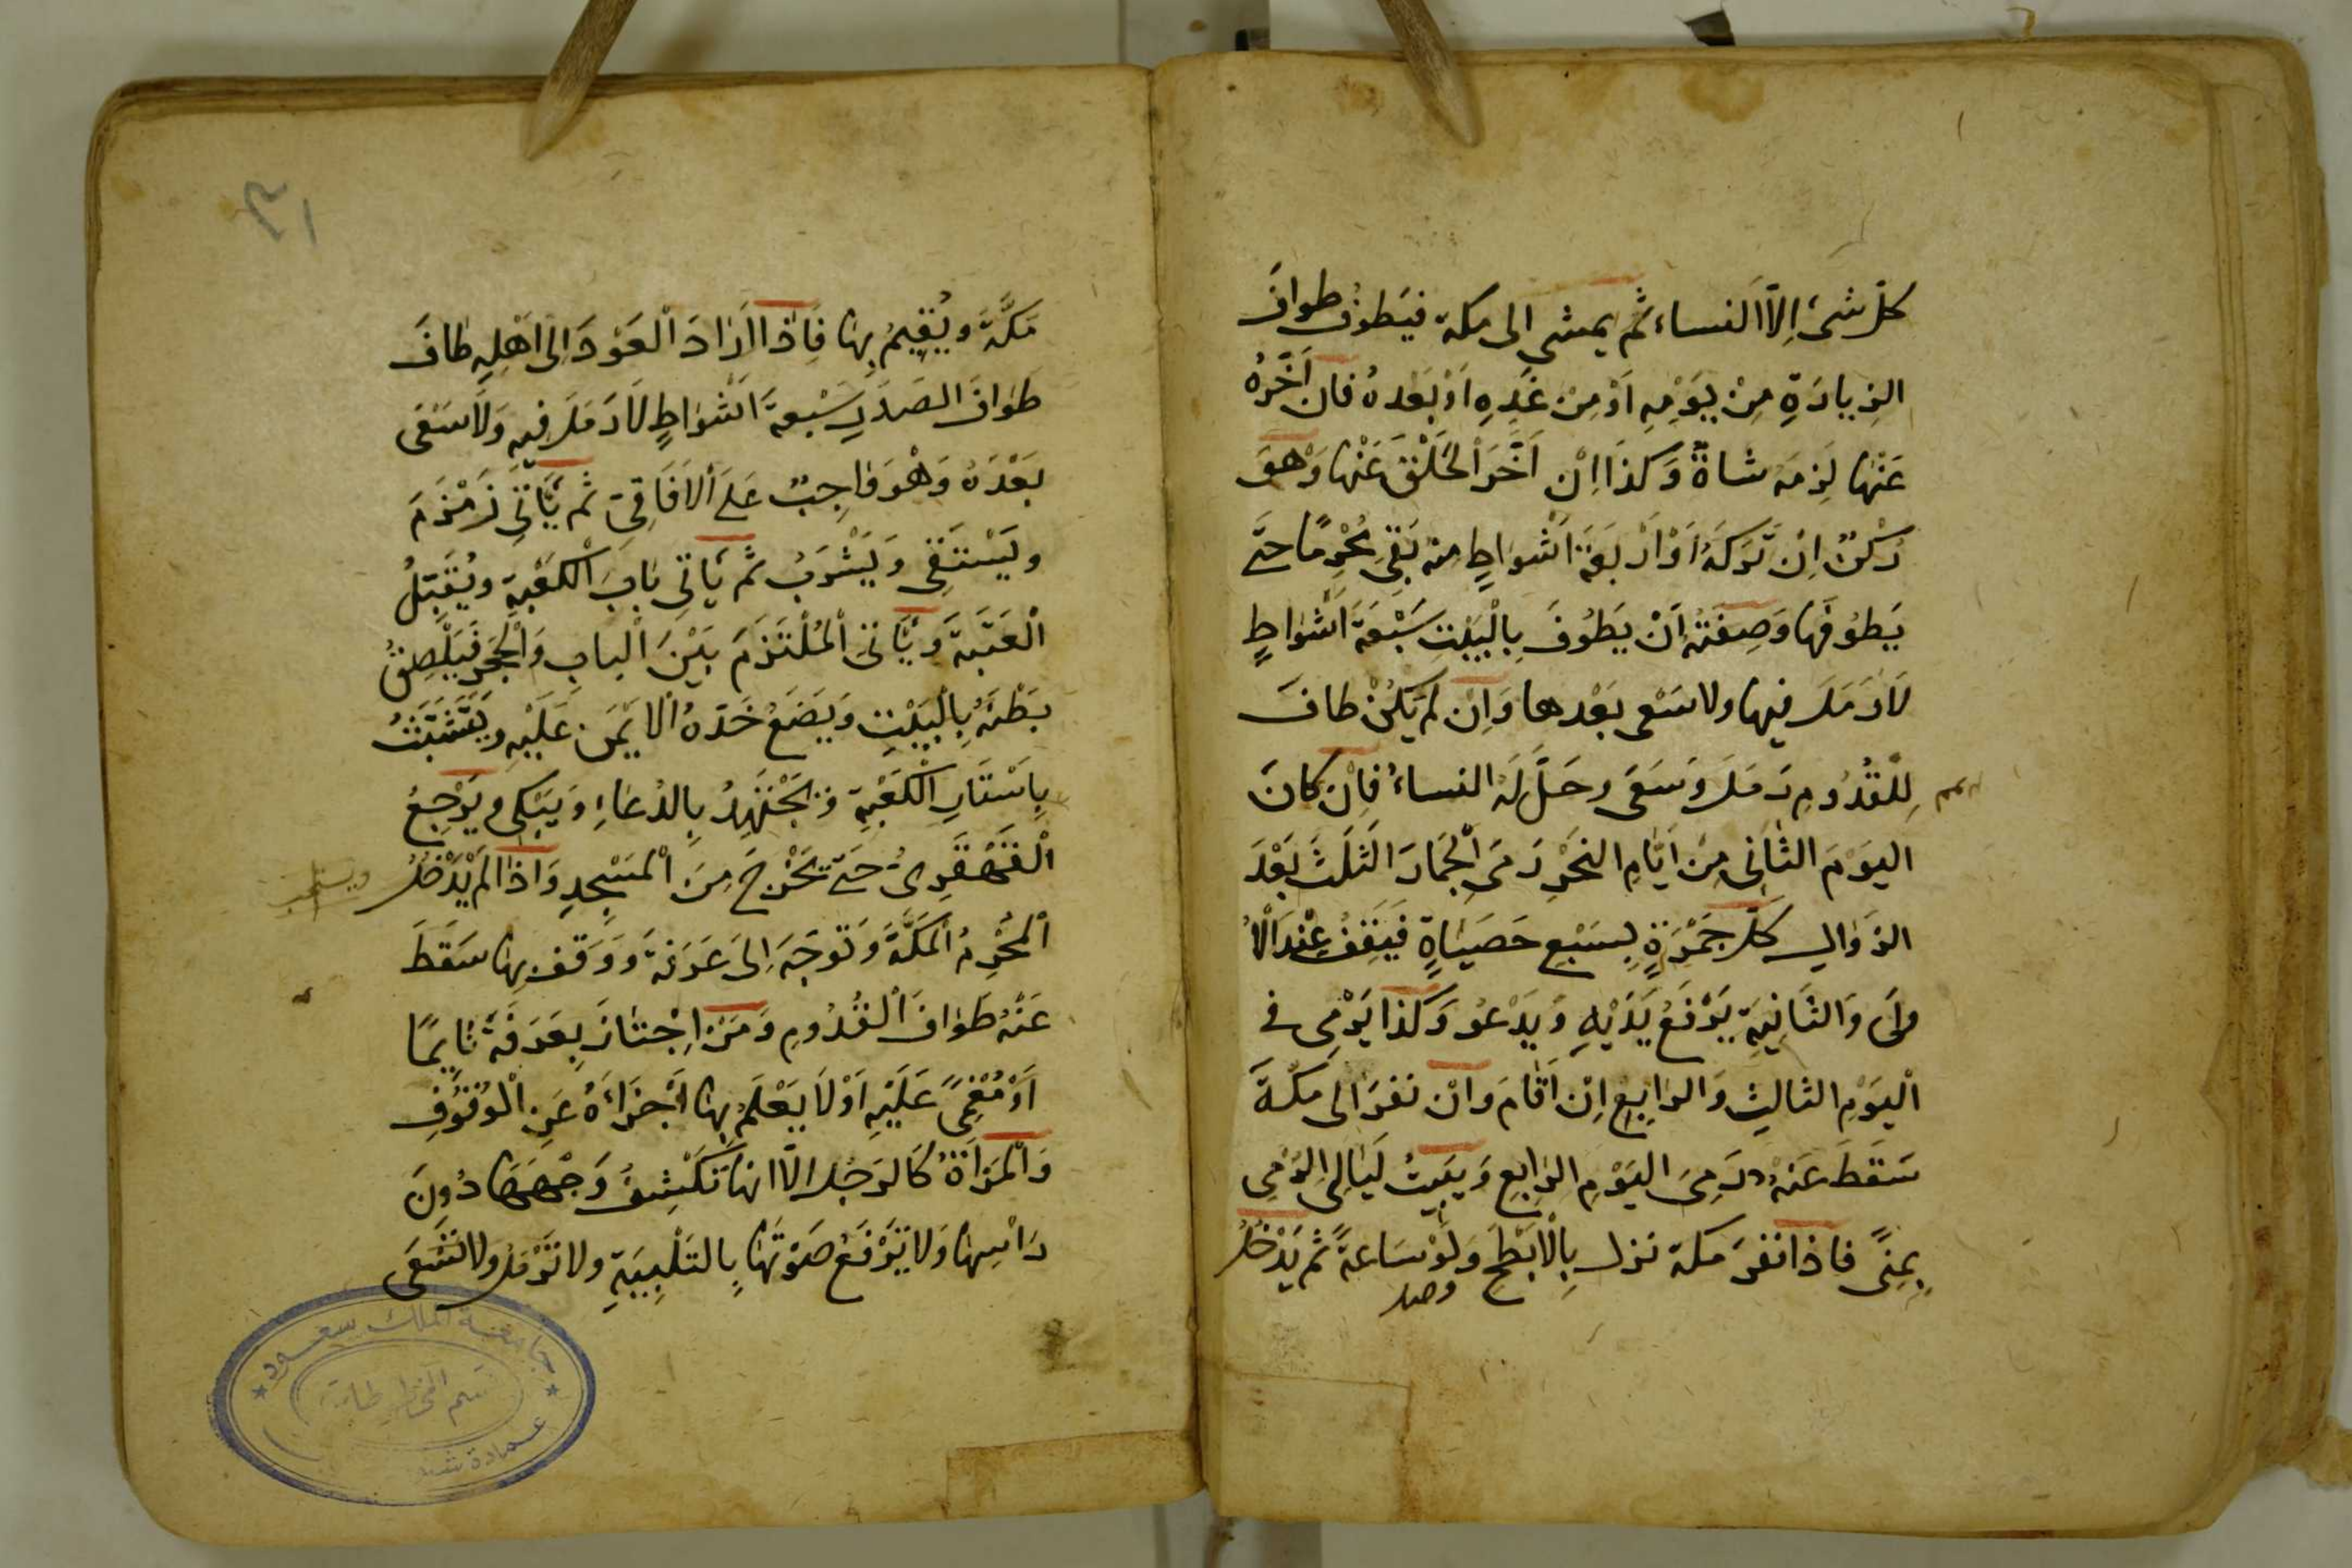 كلّ شئ إِلاّ النساء ثم يمشي الى مكة فيَطوُف طوافَ
الزِيادَةِ مِنْ يَوْمِهِ اَوْ مِنْ غَدِهِ اَوْ بَعْدهُ فان اَخَّرَهُ
عَنْها لَزِمَه شاةٌ وَكذَا اِنْ اَخَّرَ الحَلْقَ عَنْها وَهوَ
رُكْنٌ اِنْ تَرَكَهُ اَوْ اَرْبَعَةَ اَشْواطٍ منه بَقِيَ مُحْرِمًا حتَّى
يَطوُفَها وَصِفَتُهُ اَنْ يَطوُفَ بِالْبَيْتِ سَبْعَةَ اَشْواطٍ
لاَ رَمَلَ فيها ولا سَعْى بَعْدها وَاِنْ لَمْ يَكُنْ طافَ
لِلْقُدُومِ رَمَلَ وَسَعَى وحَلَّ لَهُ النساءُ فاِنْ كانَ
اليَوْمَ الثانى مِنْ اَيّامِ النحْرِ رَمَى الْجِمَارَ الثَلثَ بَعْدَ
الزَوالِ كلّ جَمْرَةٍ بِسَبْعِ حَصَيٰاةٍ فَيَقِفُ عِنْدَ الْاُ
ولَى وَالثانِيَةِ يَرْفَعُ يَدَيْهِ وَيَدْعُو وَكذا يَرْمِى فى
الْيَوْمِ الثالِثِ وَالرابِعِ اِنْ اَقامَ وانْ نَفَرَ الى مَكّةَ
سَقَطَ عَنْهُ رَمِىَ اليَوْمِ الرابِعِ وَيَبيتُ لَيالِىَ الرَمْىِ
بِمِنًى فاذا نَفَرَ مكة نزل بِالْاَبْطَحِ وَلَوْ سَاعَةً ثم يَدْخُلُ
مَكَّةَ ويُقِيمُ بِها فَاِذا اَرَادَ الْعَوْدَ اِلىَ اهْلِهِ طافَ
طَوافَ الصَدَرِ سَبْعَةَ اَشْواطٍ لاَ رَمَلَ فيهِ وَلاَ سَعْى
بَعْدَهُ وَهْوَ وَاجِبٌ عَلَى الْافَاقِىّ ثم يَأْتِى زَمْزَمَ
ويَسْتَقِى وَيَشْرَبُ ثم يَأتِى بابَ الْكَعْبَةِ ويُقَبِّلُ
الْعَتَبَةَ وَيَأتِى الْمُلْتَزَمَ بَيْنَ الْبابِ وَالْحَجَرِ فَيُلْصِقُ
بَطْنَهُ بِالْبَيْتِ وَيَضَعُ خَدّهُ الْايْمَنَ عَلَيْهِ وَيَتَشَبَّثُ
بِاَسْتَارِ الْكَعْبَةِ وَيَجْتَهِدُ بِالدُعاءِ وَيَبْكِى وَيَرْجِعُ
الْقَهْقَرِىَ حَتّى يَخْرُجَ مِنَ الْمَسْجِدِ وَاِذا لَمْ يَدْخُلْ
الْمُحْرِمُ الْمَكَّةَ وَتَوَجَّهَ اِلىَ عَرَفَةَ وَوَقَفَ بِها سَقَطَ
عَنْهُ طَوافَ الْقُدُومِ وَمَنْ اِجْتازَ بِعَرَفَةَ نايِمًا
اَوْ مُغْمِىً عَلَيْهِ اَوْ لاَ يَعْلَمُ بِها اَجْزَاءَهُ عَنِ الْوُقُوفِ
وَالْمَرْاَةُ كَالرَجُلِ الاّ انها تَكْشِفُ وَجْهَهَا دُونَ
رَاْسِها وَلا تَرْفَعُ صَوْتَها بِالتَلْبِيَةِ ولا تَرْمُلُ ولا تَسْعَى
وصل
ويستحب
٣١
جامعة الملك سعود
قسم المخطوطات